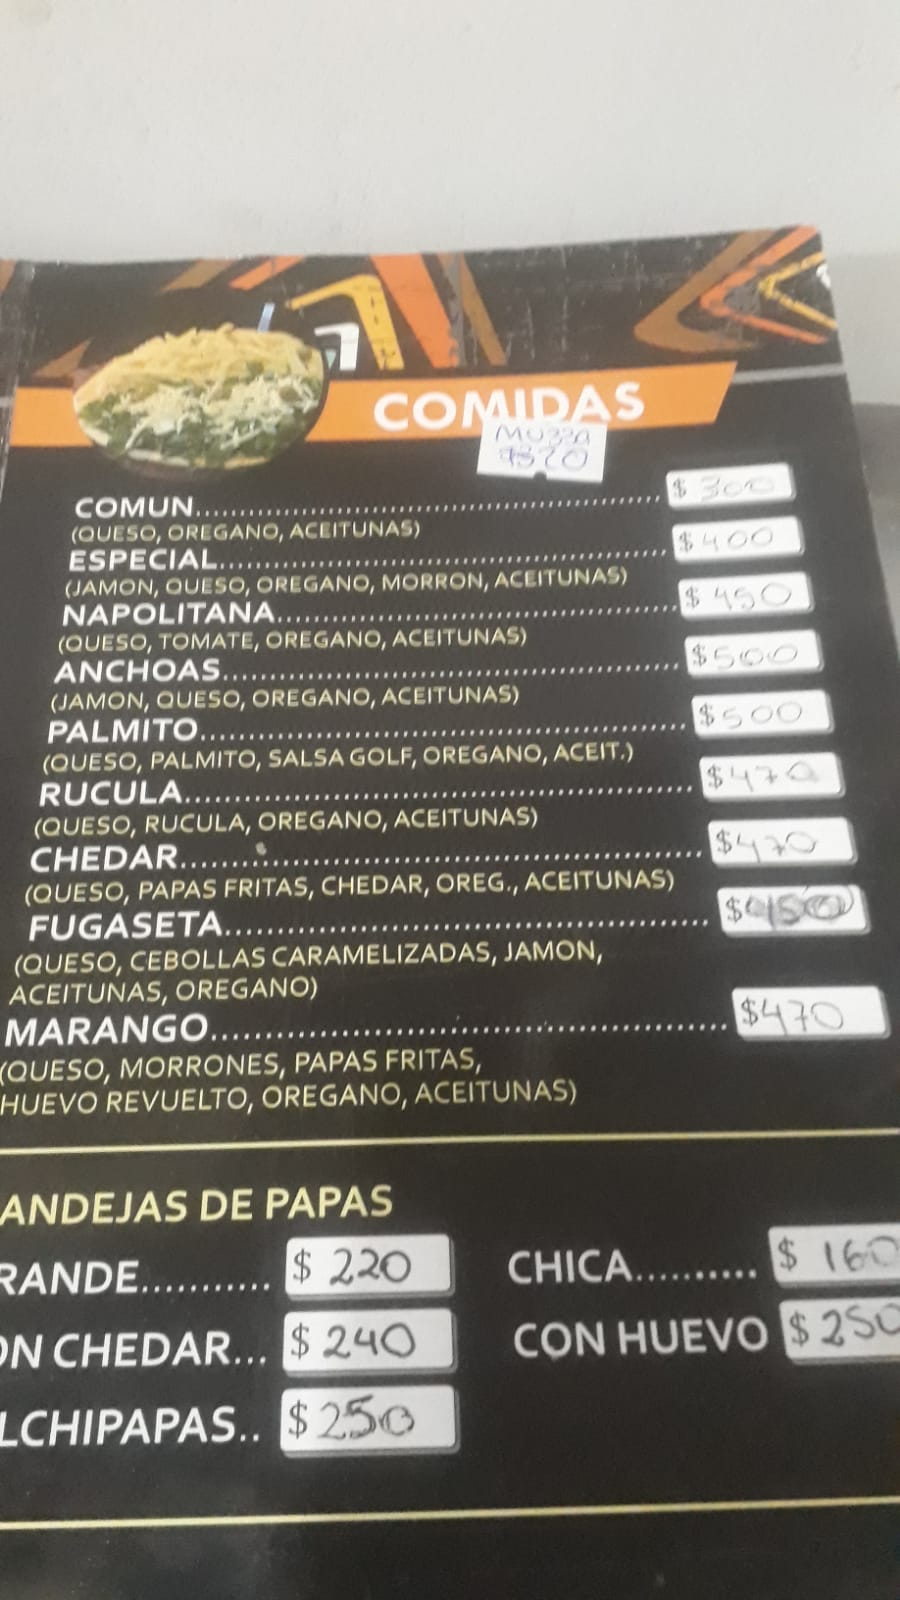 COMIDAS
MUZZA
$320
COMUN.......... $300
(QUESO, OREGANO, ACEITUNAS)
ESPECIAL.......... $400
(JAMON, QUESO, OREGANO, MORRON, ACEITUNAS)
NAPOLITANA.......... $450
(QUESO, TOMATE, OREGANO, ACEITUNAS)
ANCHOAS.......... $500
(JAMON, QUESO, OREGANO, ACEITUNAS)
PALMITO.......... $500
(QUESO, PALMITO, SALSA GOLF, OREGANO, ACEIT.)
RUCULA.......... $470
(QUESO, RUCULA, OREGANO, ACEITUNAS)
CHEDAR.......... $470
(QUESO, PAPAS FRITAS, CHEDAR, OREG., ACEITUNAS)
FUGASETA..........
(QUESO, CEBOLLAS CARAMELIZADAS, JAMON,
ACEITUNAS, OREGANO)
MARANGO.......... $470
(QUESO, MORRONES, PAPAS FRITAS,
HUEVO REVUELTO, OREGANO, ACEITUNAS)
ANDEJAS DE PAPAS
RANDE.......... $ 220 CHICA.......... $ 160
ON CHEDAR... $ 240 CON HUEVO $ 250
LCHIPAPAS.. $ 250